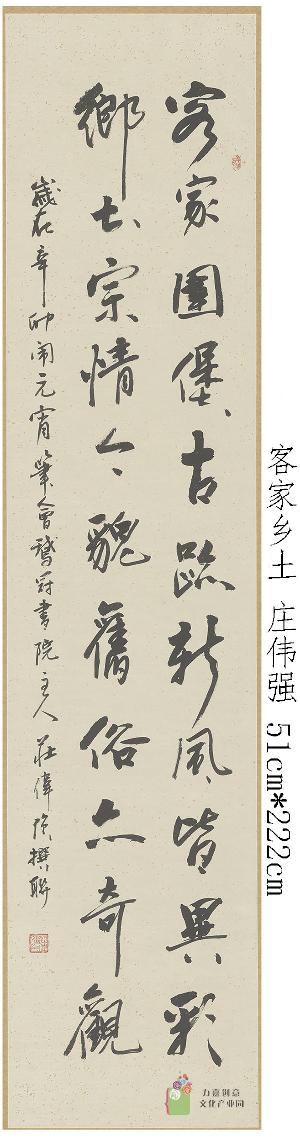 客家圍堡古跡新風皆異彩
鄉土宗情今貌舊俗亦奇觀
歲在辛卯鬧元宵筆會鵝冠書院主人莊偉強撰聯
客家乡土 庄伟强 51cm*222cm
力嘉创意
文化产业园